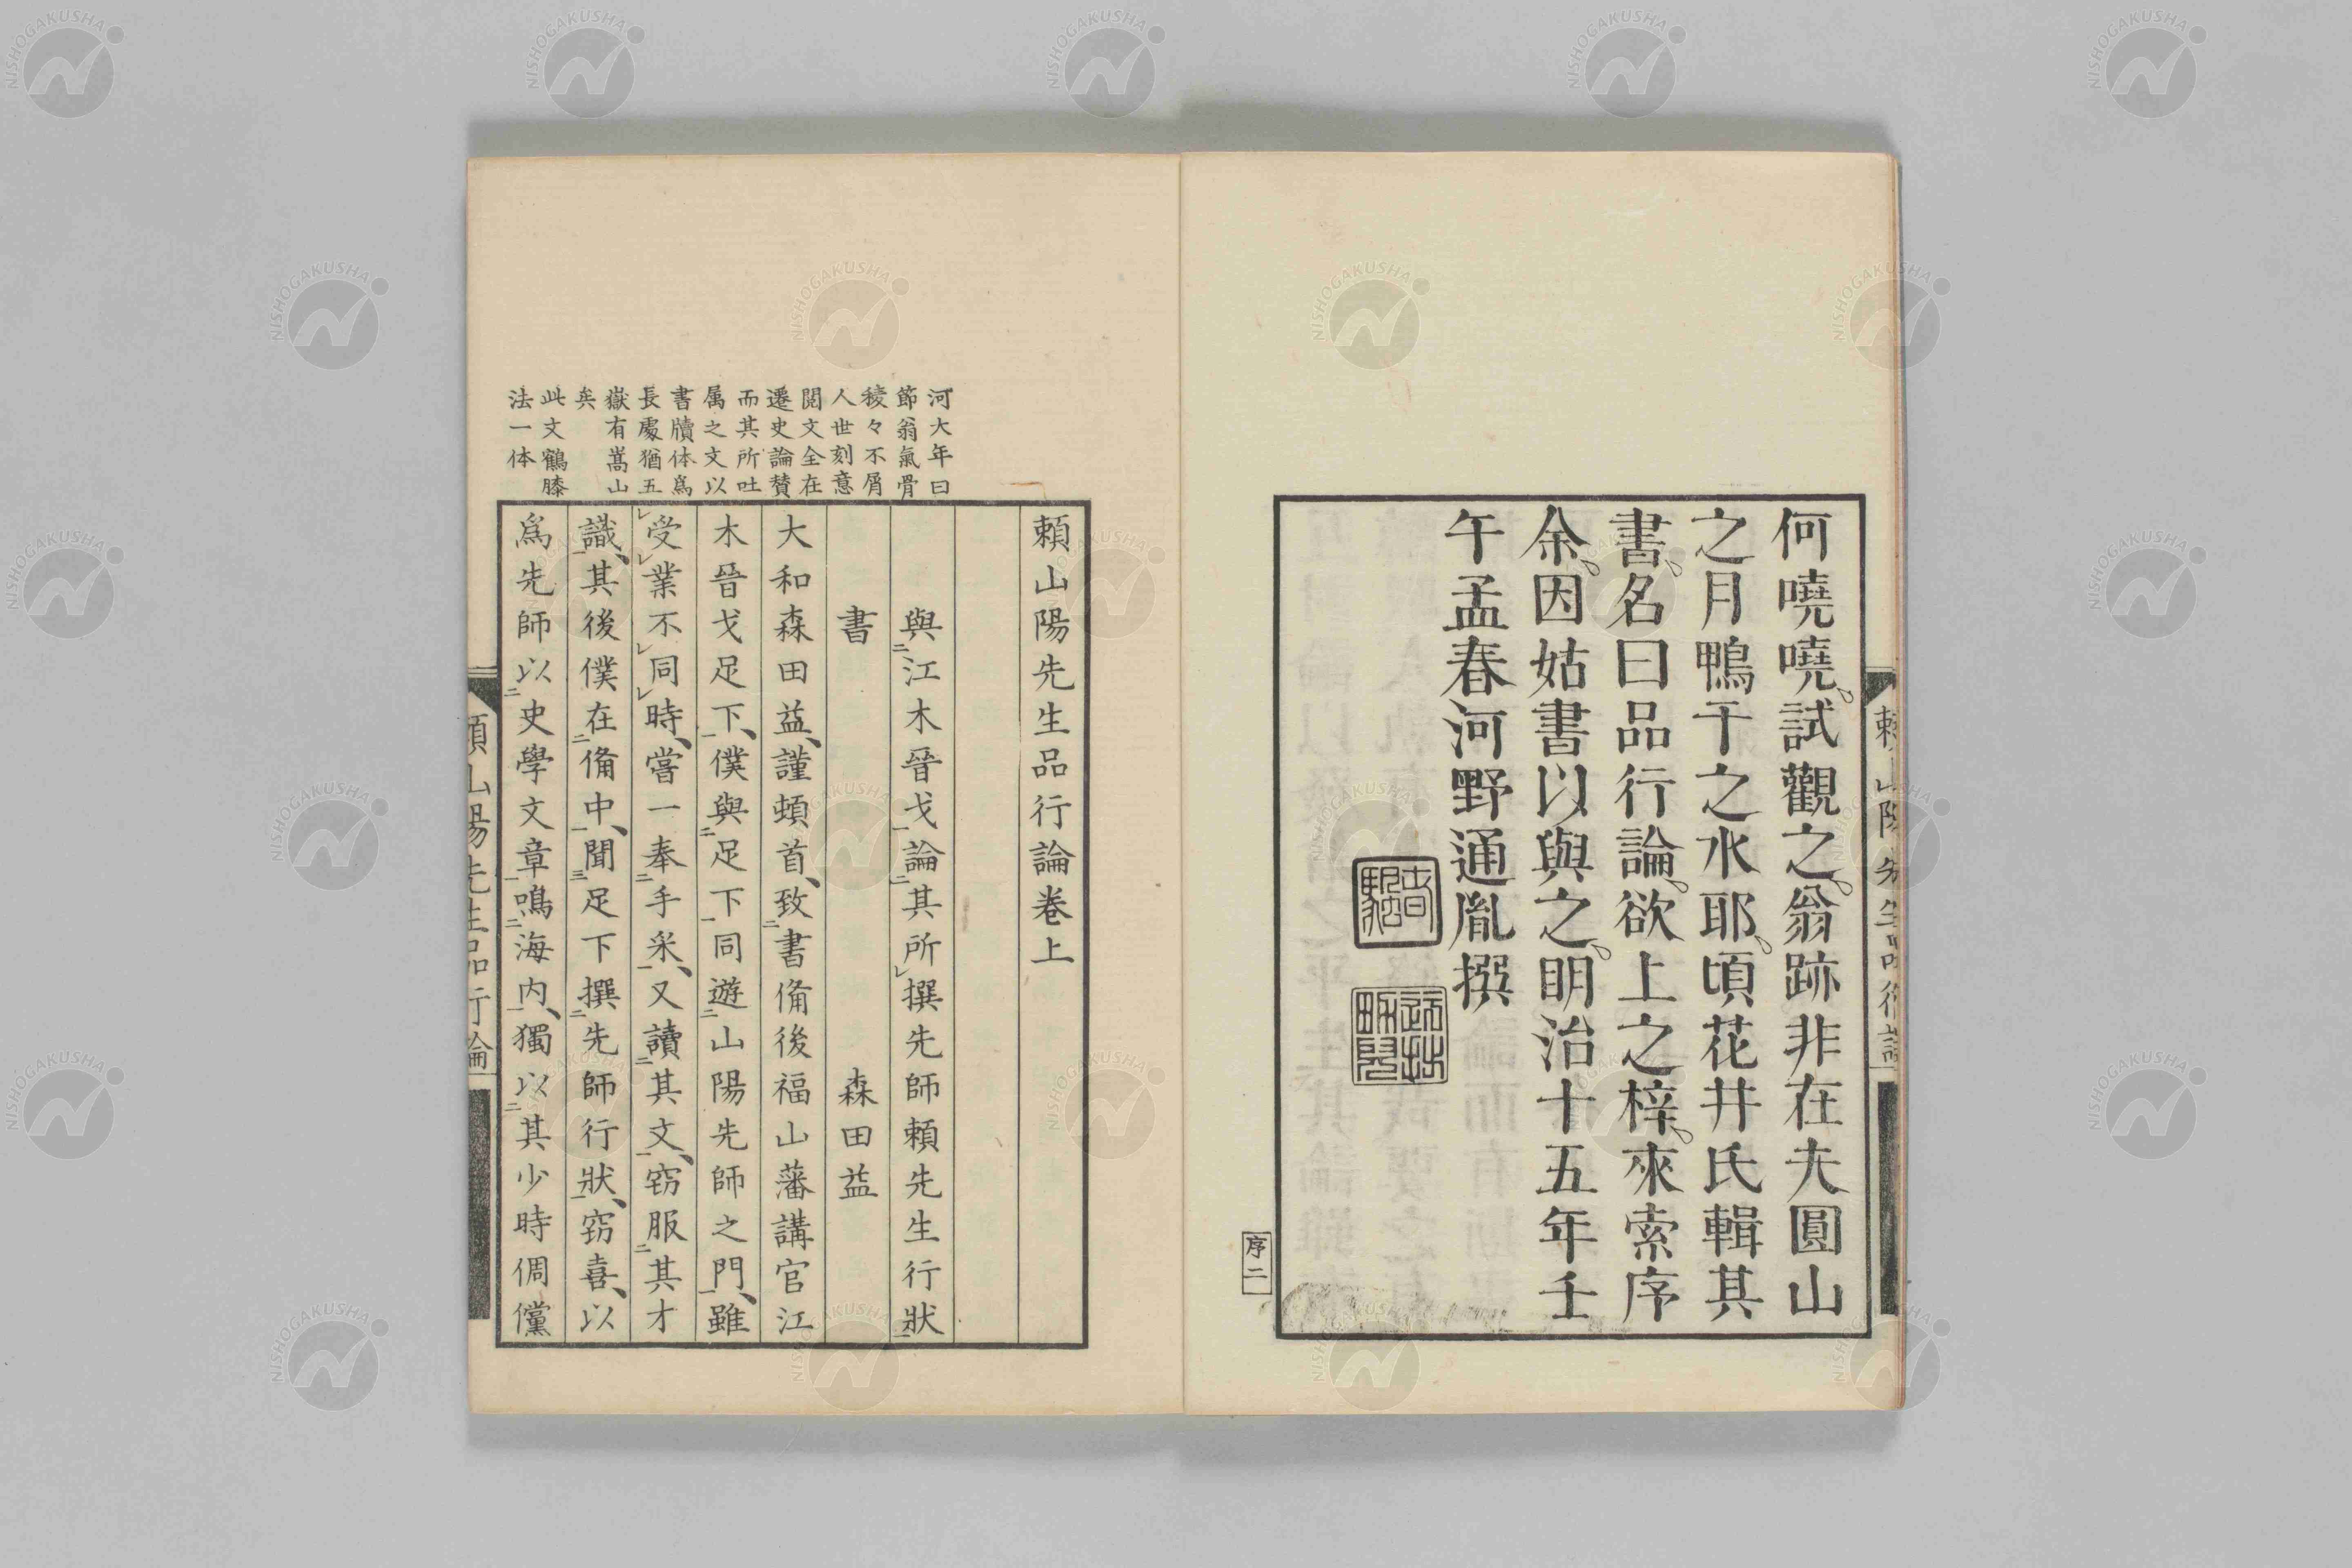 何嘵嘵試觀之翁跡非在夫圓山
之月鴨干之水耶頃花井氏輯其
書名曰品行論欲上之梓來索序
余因姑書以與之明治十五年壬
午孟春河野通胤撰
序二
頼山陽先生品行論卷上
與江木晉戈論其所撰先師頼先生行狀
書 森田益
大和森田益謹頓首致書備後福山藩講官江
木晉戈足下僕與足下同遊山陽先師之門雖
受業不同時嘗一奉手采又讀其文窃服其才
識其後僕在備中聞足下撰先師行狀窃喜以
爲先師以史學文章鳴海内獨以其少時倜儻
河大年曰
節翁氣骨
稜々不屑
人世刻意
閲文全在
遷史論賛
而其所吐
属之文以
書牘体爲
長處猶五
嶽有嵩山
矣
此文鶴膝
法一体
頼山陽先生品行論
NISHOGAKUSHA